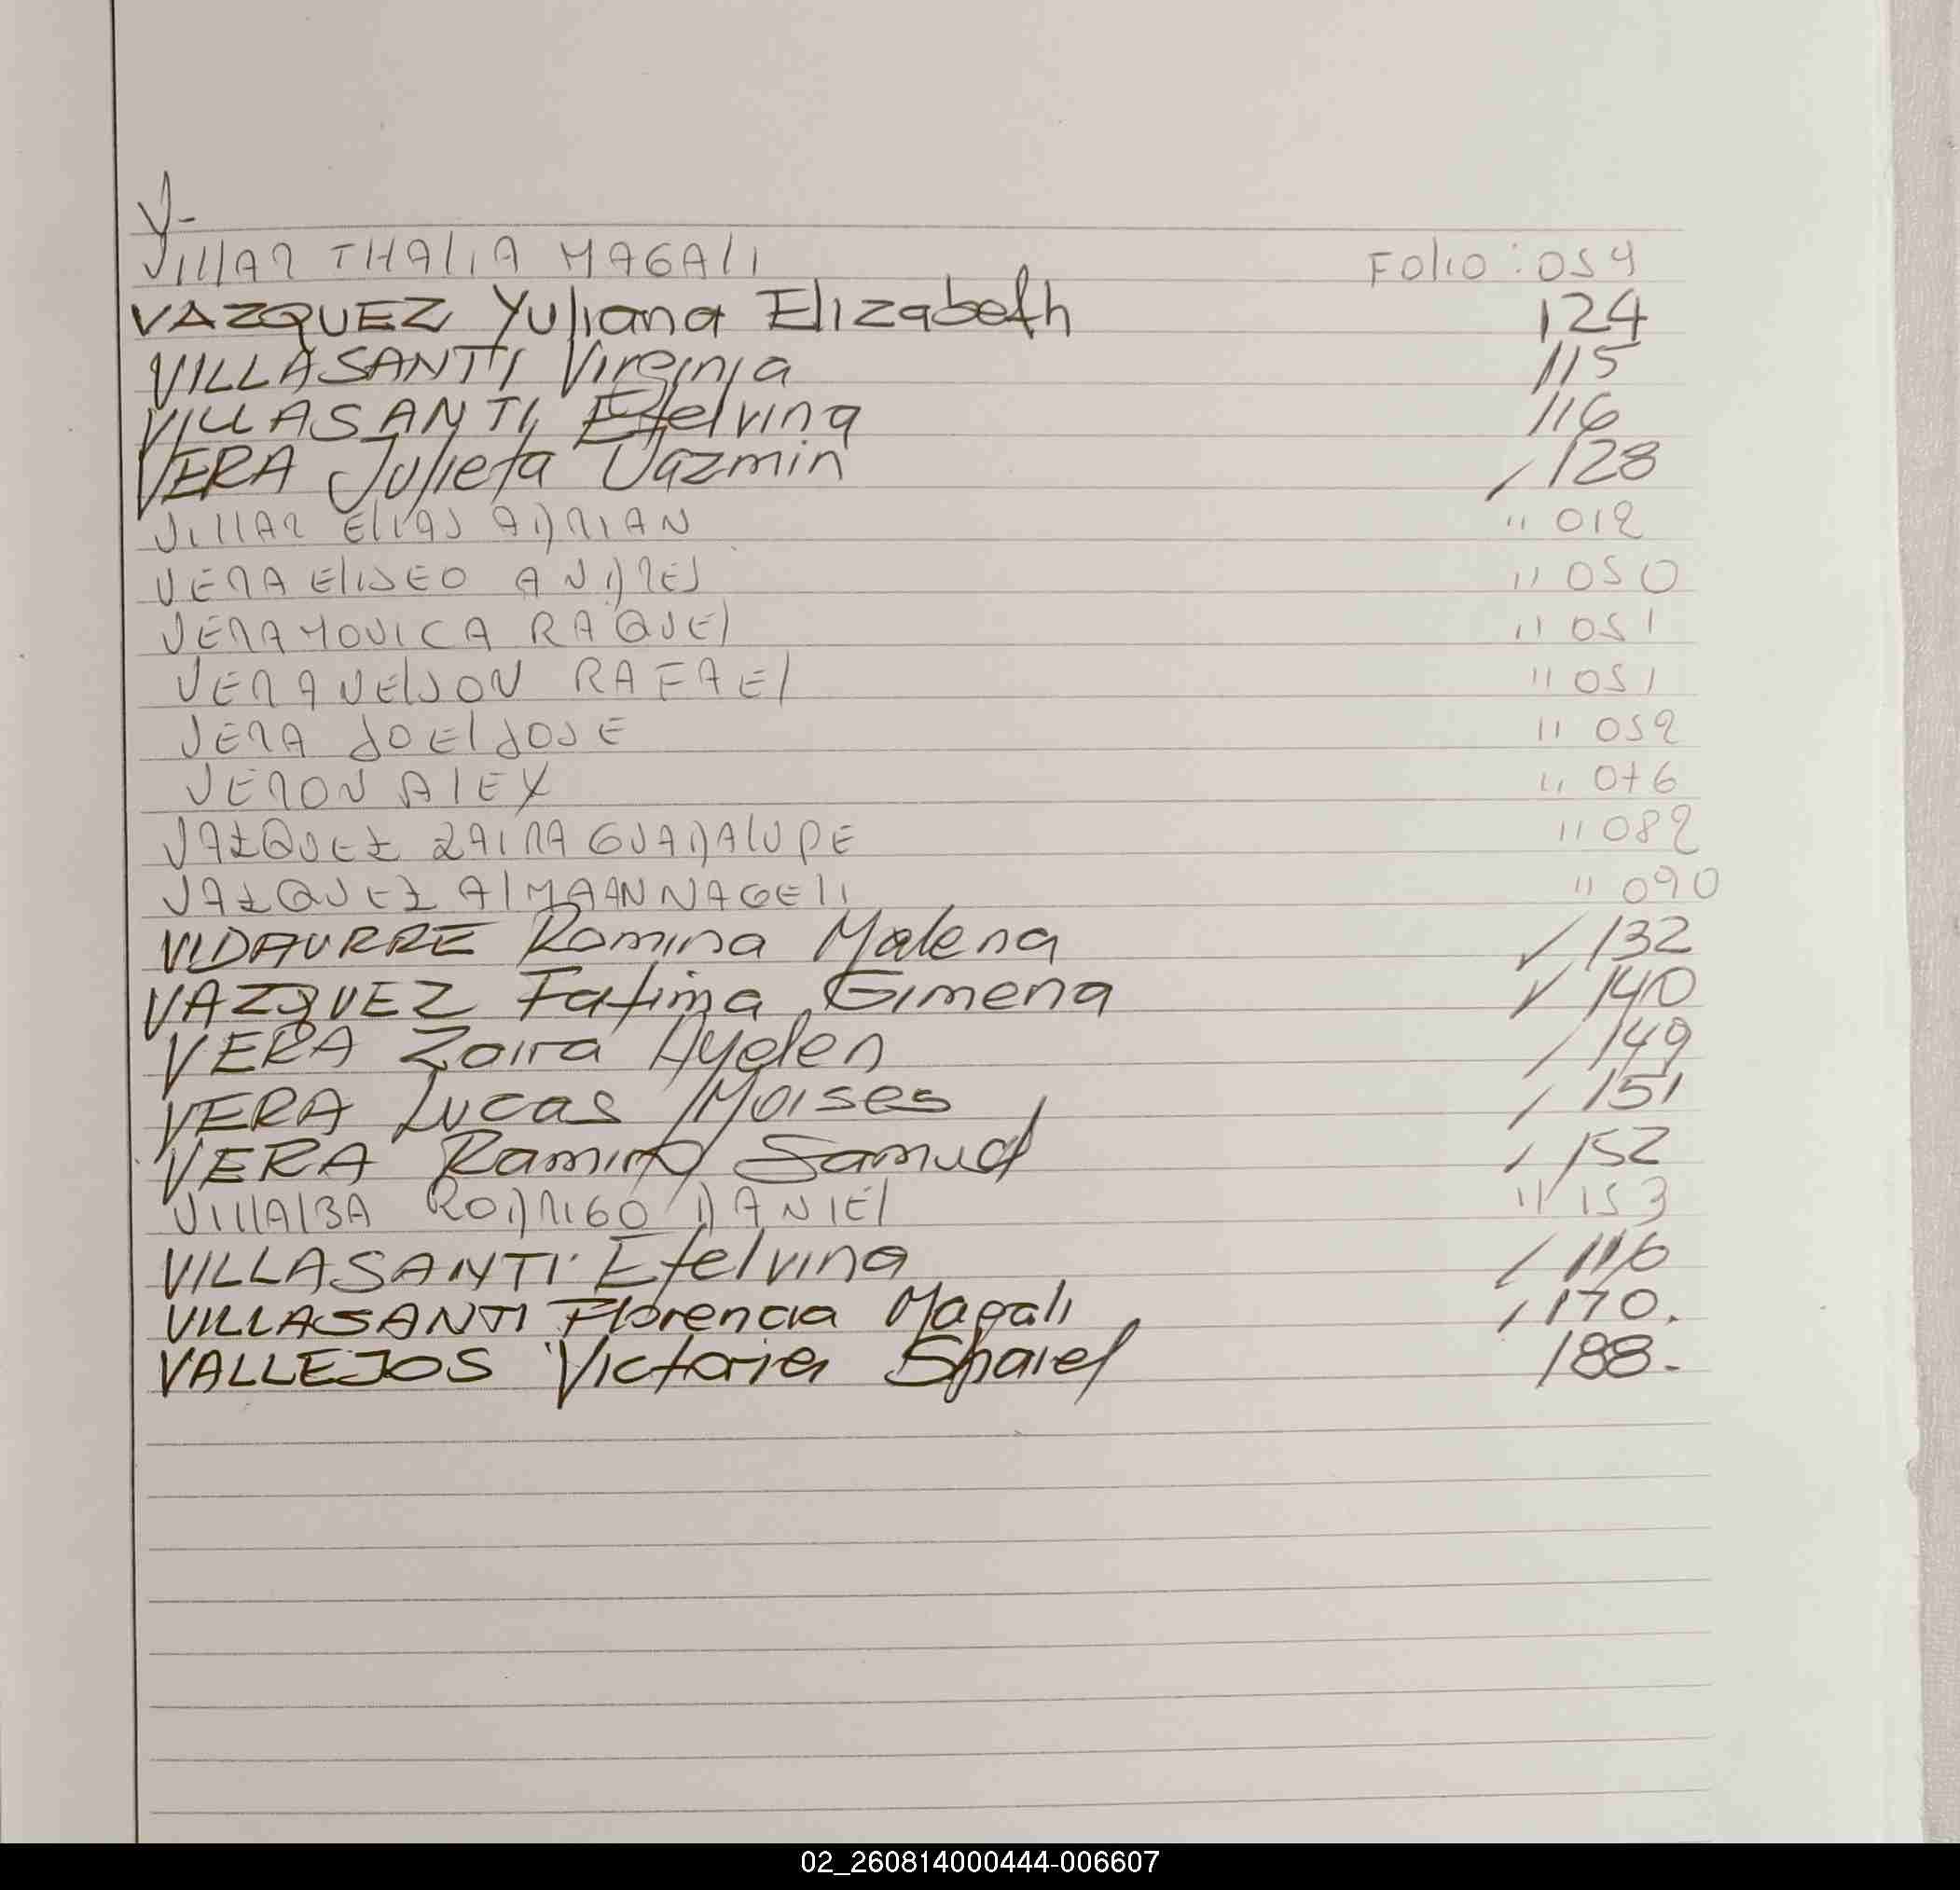 V-
VILLAR THALIA MAGALI Folio: 054
VAZQUEZ Yuliana Elizabeth 124
VILLASANTI Virginia 115
VILLASANTI, Etelvina 116
VERA Julieta Jazmin / 128
VILLAR ELIAS ADRIAN " 012
VERA ELISEO ANDRES " 050
VERA MONICA RAQUEL " 051
VERA NELSON RAFAEL " 051
VERA JOEL JOSE " 052
VERON ALEX " 076
VAZQUEZ ZAIRA GUADALUPE " 082
VAZQUEZ ALMA ANNAGELI " 090
VIDAURRE Romina Malena / 132
VAZQUEZ Fatima Gimena / 140
VERA Zaira Ayelen / 149
VERA Lucas Moises / 151
VERA Ramiro Samuel / 152
VILLALBA RODRIGO DANIEL " 153
VILLASANTI Etelvina / 116
VILLASANTI Florencia Magali / 170.
VALLEJOS Victoria Shaiel 188.-
02_260814000444-006607